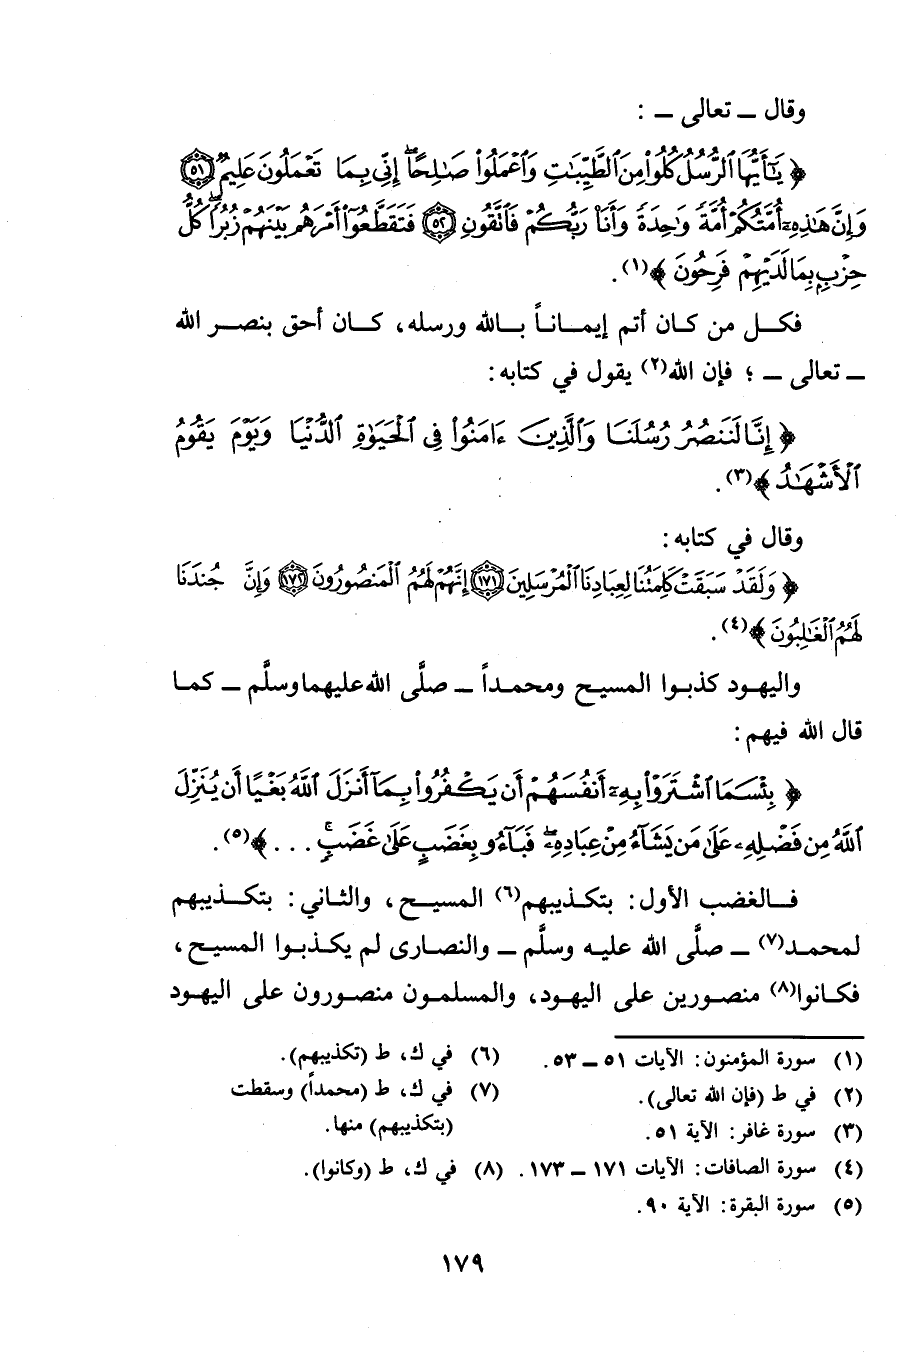 وقال ــ تعالى ــ :
﴿ يَٰٓأَيُّهَا ٱلرُّسُلُ كُلُوا۟ مِنَ ٱلطَّيِّبَٰتِ وَٱعْمَلُوا۟ صَٰلِحًا ۖ إِنِّى بِمَا تَعْمَلُونَ عَلِيمٌ ۝٥١
وَإِنَّ هَٰذِهِۦٓ أُمَّتُكُمْ أُمَّةً وَٰحِدَةً وَأَنَا۠ رَبُّكُمْ فَٱتَّقُونِ ۝٥٢ فَتَقَطَّعُوٓا۟ أَمْرَهُم بَيْنَهُمْ زُبُرًا ۖ كُلُّ
حِزْبٍۭ بِمَا لَدَيْهِمْ فَرِحُونَ ﴾(١).
فكـل من كـان أتم إيمـانـاً بـالله ورسله، كـان أحق بنصـر الله
ــ تعالى ــ ؛ فإن الله(٢) يقول في كتابه:
﴿ إِنَّا لَنَنصُرُ رُسُلَنَا وَٱلَّذِينَ ءَامَنُوا۟ فِى ٱلْحَيَوٰةِ ٱلدُّنْيَا وَيَوْمَ يَقُومُ
ٱلْأَشْهَٰدُ ﴾(٣).
وقال في كتابه:
﴿ وَلَقَدْ سَبَقَتْ كَلِمَتُنَا لِعِبَادِنَا ٱلْمُرْسَلِينَ ۝١٧١ إِنَّهُمْ لَهُمُ ٱلْمَنصُورُونَ ۝١٧٢ وَإِنَّ جُندَنَا
لَهُمُ ٱلْغَٰلِبُونَ ﴾(٤).
واليهـود كذبـوا المسيـح ومحمـداً ــ صلَّى الله عليهما وسلَّم ــ كمـا
قال الله فيهم:
﴿ بِئْسَمَا ٱشْتَرَوْا۟ بِهِۦٓ أَنفُسَهُمْ أَن يَكْفُرُوا۟ بِمَآ أَنزَلَ ٱللَّهُ بَغْيًا أَن يُنَزِّلَ
ٱللَّهُ مِن فَضْلِهِۦ عَلَىٰ مَن يَشَآءُ مِنْ عِبَادِهِۦ ۖ فَبَآءُو بِغَضَبٍ عَلَىٰ غَضَبٍ ۚ . . . ﴾(٥).
فـالغضب الأول: بتكـذيبهم(٦) المسيـح، والثـاني: بتكـذيبهم
لمحمـد(٧) ــ صلَّى الله عليـه وسلَّم ــ والنصـارى لم يكـذبـوا المسيـح،
فكـانوا(٨) منصـورين على اليهـود، والمسلمـون منصـورون على اليهـود
(١) سورة المؤمنون: الآيات ٥١ ــ ٥٣.
(٢) في ط (فإن الله تعالى).
(٣) سورة غافر: الآية ٥١.
(٤) سورة الصافات: الآيات ١٧١ ــ ١٧٣.
(٥) سورة البقرة: الآية ٩٠.
(٦) في ك، ط (تكذيبهم).
(٧) في ك، ط (محمداً) وسقطت
(بتكذيبهم) منها.
(٨) في ك، ط (وكانوا).
١٧٩